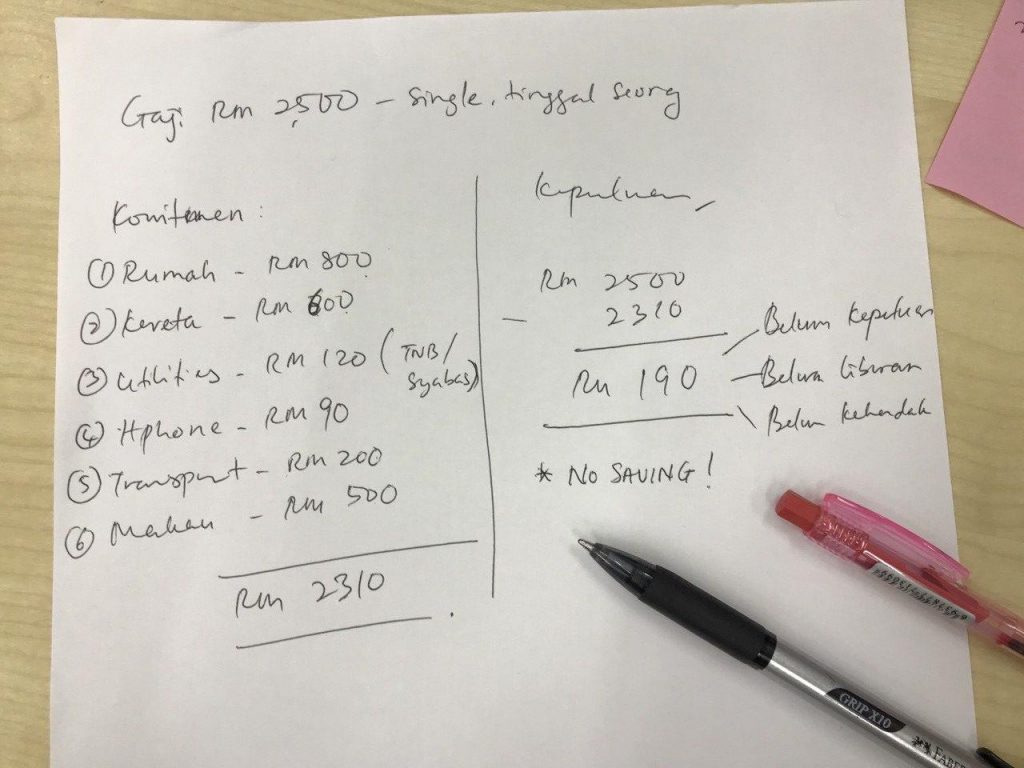 Gaji RM 2,500 - Single, tinggal seorg
Komitmen :
① Rumah - RM 800
② Kereta - RM 600
③ Utilities - RM 120 ( TNB/
Syabas)
④ Hphone - RM 90
⑤ Transport - RM 200
⑥ Makan - RM 500
RM 2310
Keputusan,
RM 2500
- 2310
RM 190
Belum keperluan
Belum liburan
Belum kehendak
* NO SAVING !
GRIP X10
FABER